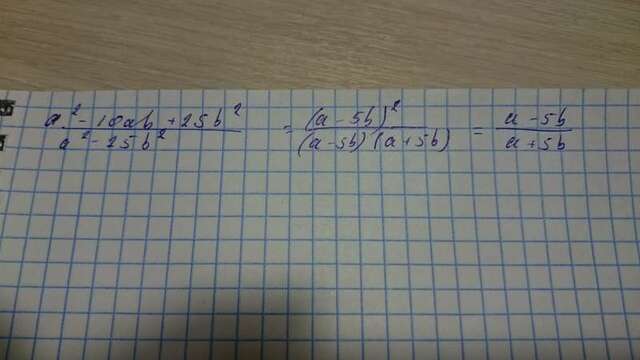 a² - 10ab + 25b² / a² - 25b² = (a - 5b)² / (a - 5b)(a + 5b) = a - 5b / a + 5b